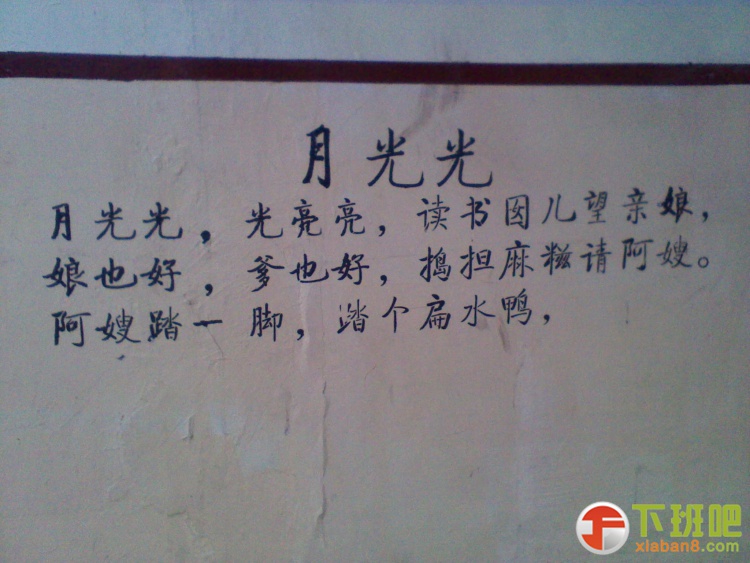 月光光
月光光，光亮亮，读书囡儿望亲娘，
娘也好，爹也好，捣担麻糍请阿嫂。
阿嫂踏一脚，踏个扁水鸭，
下班吧
xiaban8.com